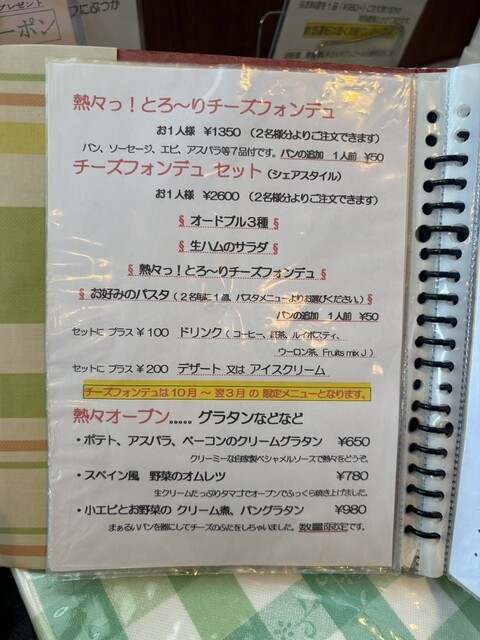 プレゼント
ーポン
熱々っ!とろ~りチーズフォンデュ
お1人様 ¥1350 (2名様分よりご注文できます)
パン、ソーセージ、エビ、アスパラ等7品付です。パンの追加 1人前 ¥50
チーズフォンデュ セット(シェアスタイル)
お1人様 ¥2600 (2名様分よりご注文できます)
§ オードブル3種 §
§ 生ハムのサラダ §
§ 熱々っ!とろ~りチーズフォンデュ §
§ お好みのパスタ(2名毎に1皿、パスタメニューよりお選びください) §
パンの追加 1人前 ¥50
セットに プラス ¥100 ドリンク(コーヒー、紅茶、ルイボスティ、
ウーロン茶、Fruits mix J)
セットに プラス ¥200 デザート 又は アイスクリーム
チーズフォンデュは10月 ~ 翌3月の 限定メニューとなります。
熱々オーブン..... グラタンなどなど
・ポテト、アスパラ、ベーコンのクリームグラタン ¥650
クリーミーな自家製ベシャメルソースで熱々をどうぞ。
・スペイン風 野菜のオムレツ ¥780
生クリームたっぷりタマゴでオーブンでふっくら焼き上げました。
・小エビとお野菜の クリーム煮、パングラタン ¥980
まぁるいパンを器にしてチーズのふたをしちゃいました。数量限定です。